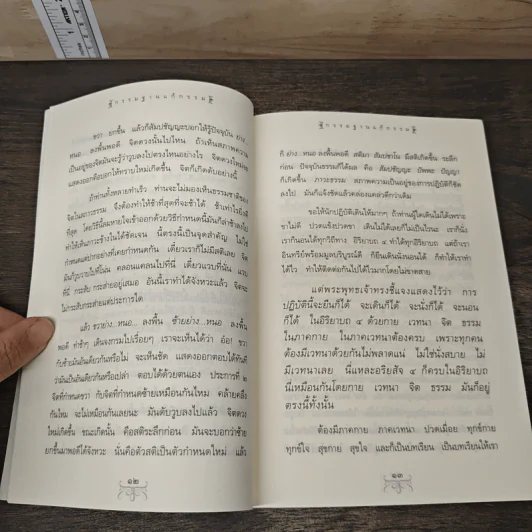 กรรมฐานแก้กรรม
ขวา ยกขึ้น แล้วก็สัมปชัญญะบอกให้รู้ปัจจุบัน ย่าง...
หนอ ลงพื้นพอดี จิตดวงนั้นไปไหน ถ้าเห็นสภาพความ
เป็นอยู่ของจิตมันจะรู้ว่าวูบลงไปตรงไหนอย่างไร จิตดวงใหม่ต้อง
แสดงออกคือบอกให้ทราบใหม่เกิดขึ้น จิตก็เกิดดับอย่างนี้
ถ้าท่านทั้งหลายทำเร็ว ท่านจะไม่มองเห็นธรรมชาติของ
จิตในสภาวธรรม จึงต้องทำให้ช้าที่สุดที่จะช้าได้ ช้าเท่าไรยิ่งดี
ที่สุด โดยวิธีนี้ลมหายใจเข้าออกด้วยวิธีกำหนดนี้มันก็ล่าช้าลงไป
ทำให้เห็นภาวะข้างในได้ชัดเจน นี้ตรงนี้เป็นจุดสำคัญ ไม่ใช่
กำหนดแปลกอย่างที่เคยกำหนดกัน เดี๋ยวเราก็ไม่มีสติเลย จิต
มันก็วูบวาบไปที่โน่น คลอนแคลนไปที่นี่ เดี๋ยววูบที่นั่น แวบ
ที่นี่ กระสับ กระส่ายอยู่เสมอ อันนี้เราทำได้จังหวะแล้ว จิตจะ
ไม่กระสับกระส่ายแต่ประการใด
แล้ว ขวาย่าง...หนอ ลงพื้น ซ้ายย่าง...หนอ ลงพื้น
พอดี ทำช้าๆ เดินจงกรมไปเรื่อยๆ เราจะเห็นได้ว่า อ๋อ! ขวา
กับซ้ายมันอันเดียวกันหรือไม่ จะเห็นชัด แสดงออกตอบได้ทันที
ว่ามันเป็นอันเดียวกันหรือเปล่า ตอบได้ด้วยตนเอง ประการที่ ๒
จิตที่กำหนดขวา กับจิตที่กำหนดซ้ายเหมือนกันไหม คล้ายคลึง
กันไหม จะไม่เหมือนกันเลยนะ มันดับวูบลงไปแล้ว จิตดวง
ใหม่เกิดขึ้น ขณะเกิดนั้น คือสติระลึกก่อน มันจะบอกว่าซ้าย
ยกขึ้นมาพอดีได้จังหวะ นั่นคือตัวสติเป็นตัวกำหนดใหม่ แล้ว
๑๒
กรรมฐานแก้กรรม
ก็ ย่าง...หนอ ลงพื้นพอดี สติมา สัมปชาโน มีสติเกิดขึ้น ระลึก
ก่อน ปัจจุบันธรรมก็ได้ผล คือ สัมปชัญญะ มีพหะ ปัญญา
ก็เกิดขึ้น ภาวะธรรม สภาพความเป็นอยู่ของการปฏิบัติก็ชัด
ลงไป มันก็แจ้งชัดแล้วคล่องแคล่วดีกว่าเดิม
ขอให้นักปฏิบัติเดินให้มากๆ ถ้าท่านผู้ใดเดินไม่ได้เพราะ
ขาไม่ดี ปวดแข้งปวดขา เดินไม่ได้เลยก็ไม่เป็นไรนะ เราก็นั่ง
เราก็นอนได้ทุกวิถีทาง อิริยาบถ ๔ ทำได้ทุกอิริยาบถ แต่ถ้าเรา
อินทรีย์พร้อมมูลบริบูรณ์ดี ก็ยืนเดินนั่งนอนได้ ก็ทำให้เราทำ
ได้ไว ทำให้ติดต่อกันไปได้ไวมากโดยไม่ขาดสาย
แต่พระพุทธเจ้าทรงชี้แจงแสดงไว้ว่า การ
ปฏิบัตินี้จะยืนก็ได้ จะเดินก็ได้ จะนั่งก็ได้ จะนอน
ก็ได้ ในอิริยาบถ ๔ ด้วยกาย เวทนา จิต ธรรม
ในภาคกาย ในภาคเวทนาต้องครบ เพราะทุกคน
ต้องมีเวทนาด้วยกันไม่พลาดแน่ ไม่ใช่นั่งสบาย ไม่
มีเวทนาเลย นี่แหละอริยสัจ ๔ ก็ครบในอิริยาบถ
นี่เหมือนกันโดยกาย เวทนา จิต ธรรม มันก็อยู่
ตรงนี้ทั้งนั้น
ต้องมีภาคกาย ภาคเวทนา ปวดเมื่อย ทุกข์กาย
ทุกข์ใจ สุขกาย สุขใจ และก็เป็นบทเรียน เป็นบทเรียนให้เรา
๑๓